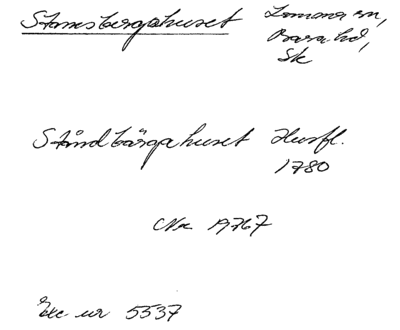 Stamsbergahuset Lomma sn,
Bara hd,
Sk
Ståndbärgahuset Husfl.
1780
Nr 19767
Exc nr 5537